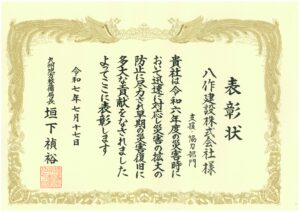 表彰状
八作建設株式会社様
支援・協力部門
貴社は令和六年度の災害時に
おいて迅速に対応し災害の拡大の
防止に尽力され早期の災害復旧に
多大な貢献をなされました
よってここに表彰します
令和七年七月十七日
九州地方整備局長
垣下禎裕